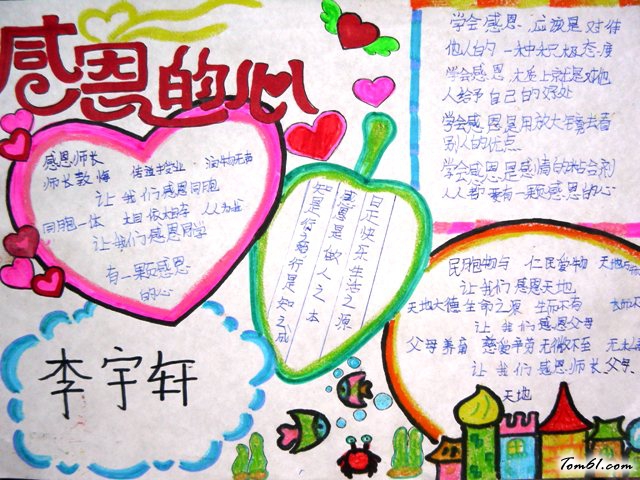 感恩的心
学会感恩，应该是对待
他人的一种积极态度
学会感恩，本质上就是对他
人给予自己的好处
学会感恩是用放大镜去看
别人的优点
学会感恩是感情的粘合剂
人人都要有一颗感恩的心
感恩师长
师长教悔
让我们感恩同胞
同胞一体
让我们感恩同学
有一颗感恩
的心
日正快乐生活之源
感恩是做人之本
知是行之始行是知之成
民胞物与 仁民爱物
让我们感恩天地
天地大德 生命之源 生而不有
让我们感恩父母
父母养育 慈爱辛劳 无微不至
让我们感恩师长父母、
天地
李宇轩
Tom61.com